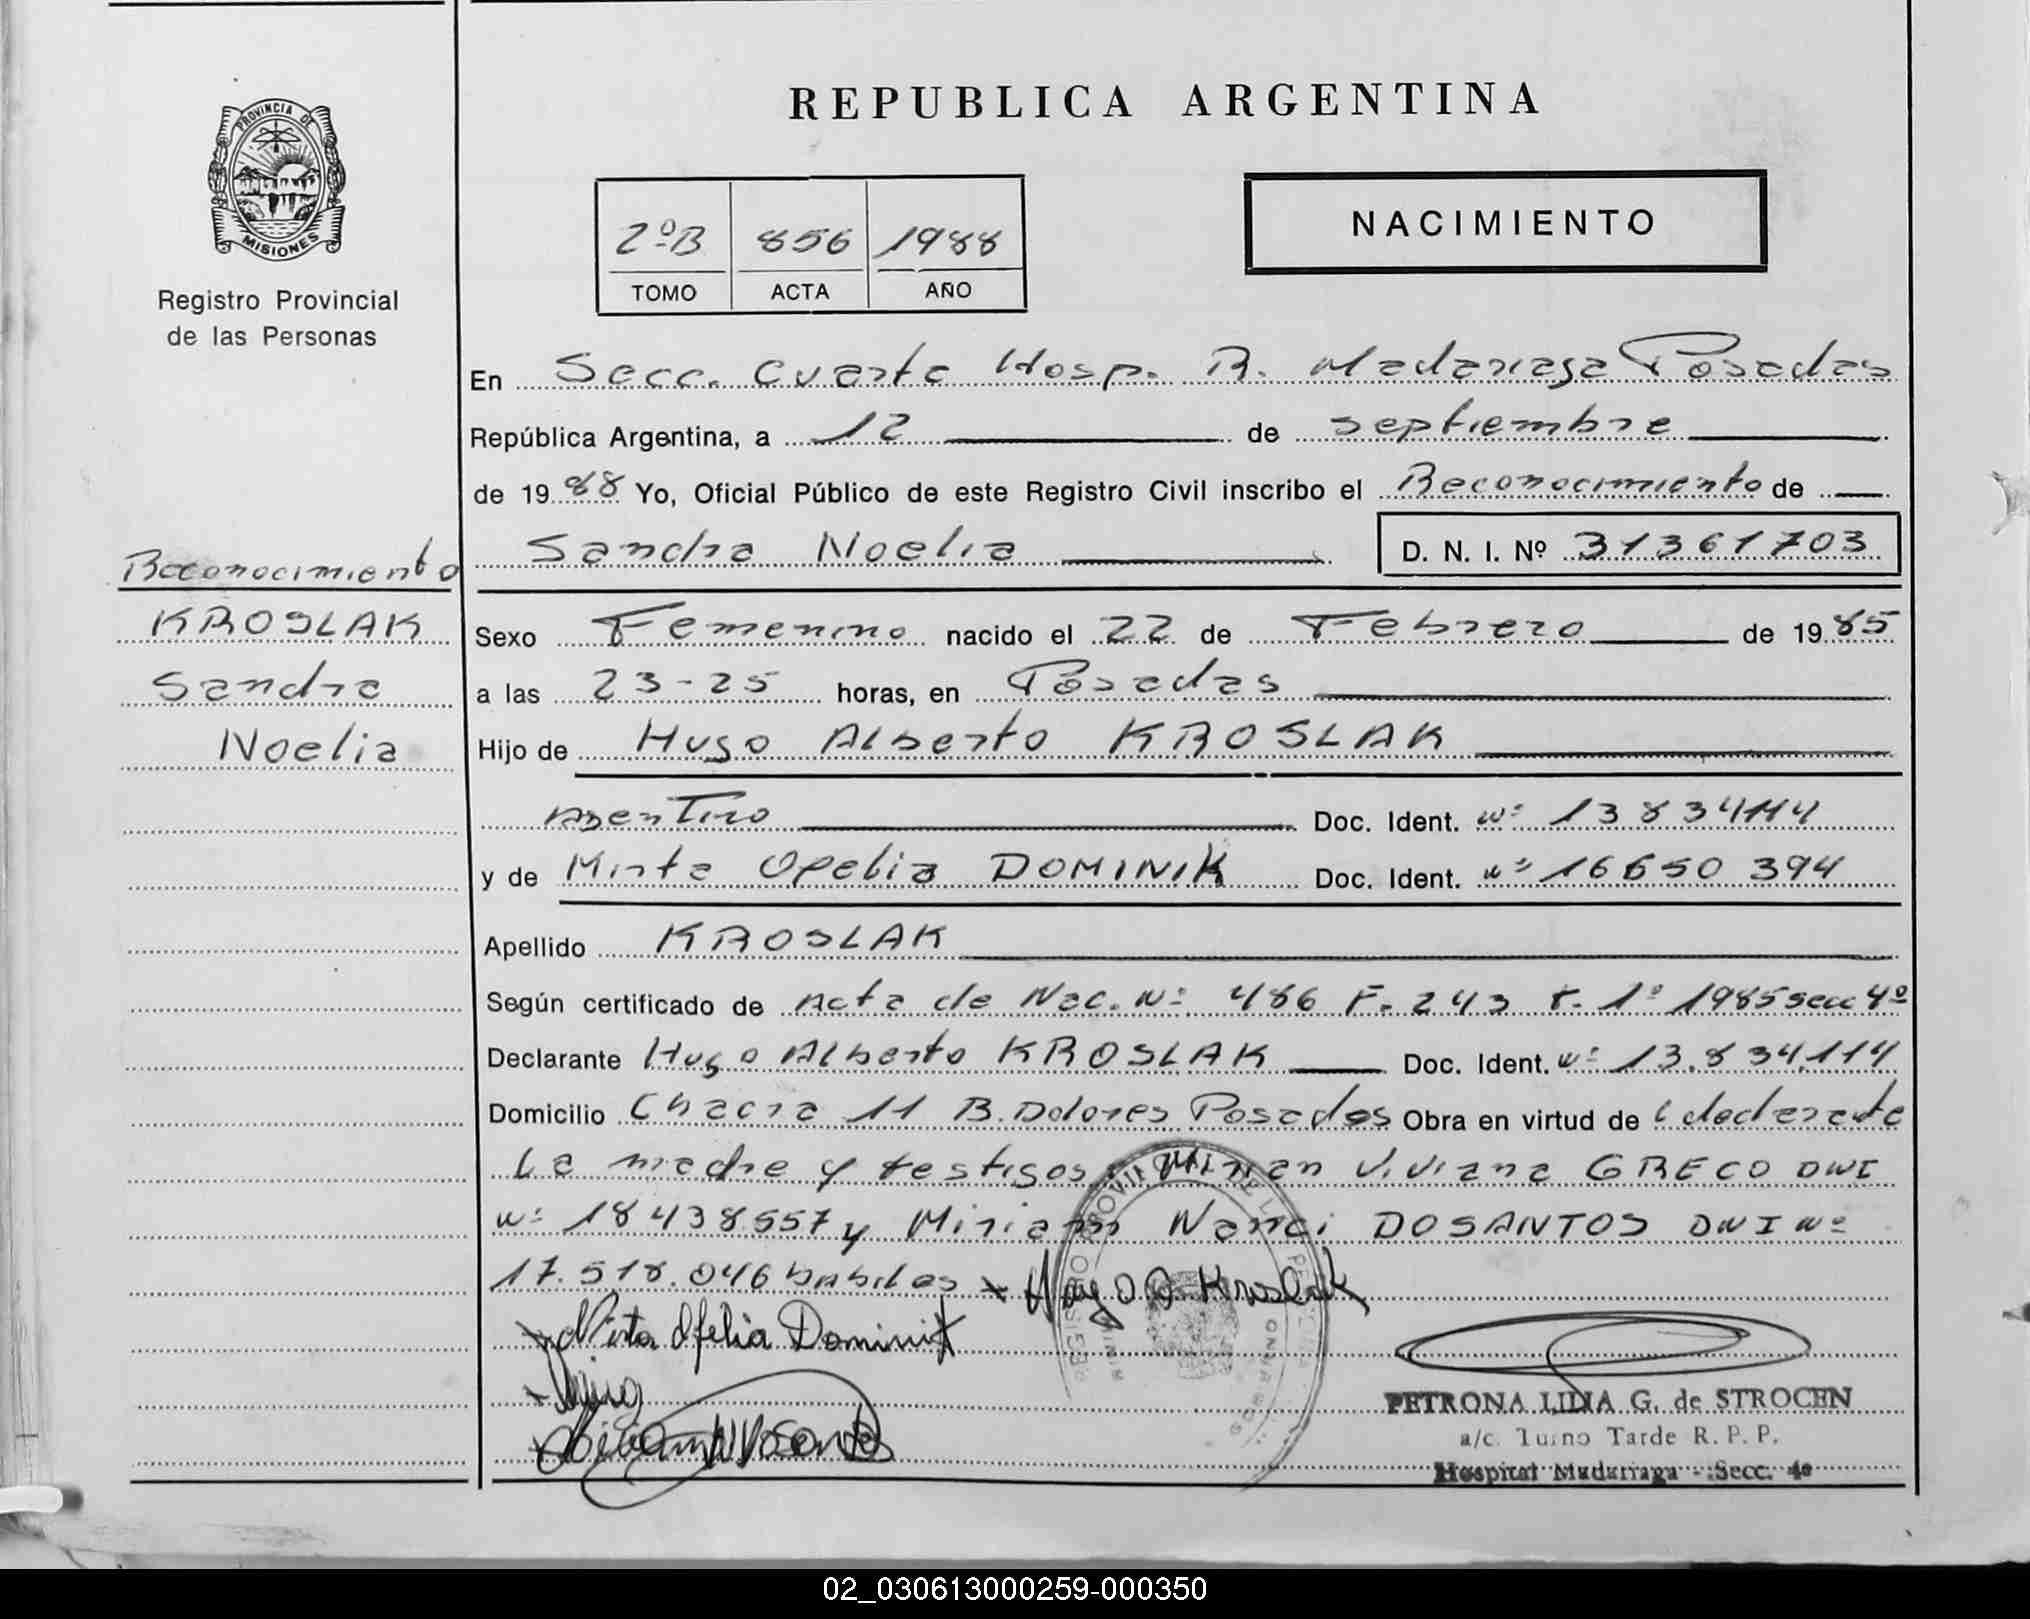 REPUBLICA ARGENTINA
PROVINCIA DE
MISIONES
Registro Provincial
de las Personas
2º B 856 1988
TOMO ACTA AÑO
NACIMIENTO
En Secc. Cuarta Hosp. R. Madariaga Posadas
República Argentina, a 12 de septiembre
de 1988 Yo, Oficial Público de este Registro Civil inscribo el Reconocimiento de
Sandra Noelia D. N. I. Nº 31361703
Reconocimiento
KROSLAK
Sandra
Noelia
Sexo Femenino nacido el 22 de Febrero de 1985
a las 23-25 horas, en Posadas
Hijo de Hugo Alberto KROSLAK
argentino Doc. Ident. Nº 13834114
y de Mirta Ofelia DOMINIK Doc. Ident. Nº 16650394
Apellido KROSLAK
Según certificado de Acta de Nac. Nº 486 F. 243 t. 1º 1985 secc 4º
Declarante Hugo Alberto KROSLAK Doc. Ident. Nº 13.834.114
Domicilio Chacra 11 B. Dolores Posadas Obra en virtud de
La madre y testigos Viviana GRECO DNI
Nº 18438557 y Miriam Nanci DOSANTOS DNI Nº
17.518.046 habiles Hugo A. Kroslak
Mirta Ofelia Dominik
PETRONA LIDIA G. de STROCEN
a/c. Turno Tarde R. P. P.
Hospital Madariaga - Secc. 4º
02_030613000259-000350